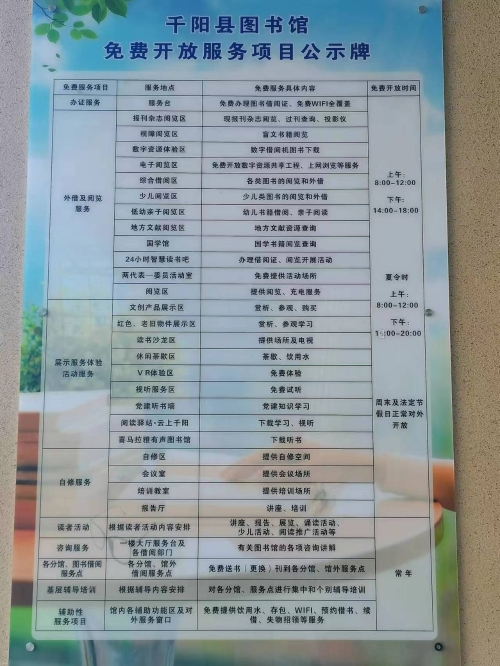 千阳县图书馆
免费开放服务项目公示牌
免费服务项目 服务地点 免费服务具体内容 免费开放时间
办证服务 服务台 免费办理图书借阅证、免费WIFI全覆盖
外借及阅览
服务
报刊杂志阅览区 现报刊杂志阅览、过刊查询、投影仪
视障阅览区 盲文书籍阅览
数字资源体验区 数字借阅机图书下载
电子阅览区 免费开放数字资源共享工程、上网浏览等服务
综合借阅区 各类图书的阅览和外借
少儿阅览区 少儿类图书的阅览和外借
低幼亲子阅览区 幼儿书籍借阅、亲子阅读
地方文献阅览区 地方文献资源查询
国学馆 国学书籍阅览查询
24小时智慧读书吧 办理借阅证、阅览开展活动
两代表一委员活动室 免费提供活动场所
阅览区 提供阅览、充电服务
上午:
8:00-12:00
下午:
14:00-18:00
夏令时
上午:
8:00-12:00
下午:
15:00-20:00
展示服务体验
活动服务
文创产品展示区 赏析、参观、购买
红色、老旧物件展示区 赏析、参观学习
读书沙龙区 提供场所及电视
休闲茶歇区 茶歇、饮用水
VR体验区 免费体验
视听服务区 免费试听
党建听书墙 党建知识学习
阅读驿站·云上千阳 下载学习、视听
喜马拉雅有声图书馆 下载听书
周末及法定节
假日正常对外
开放
自修服务
自修区 提供自修空间
会议室 提供会议场所
培训教室 提供培训场所
报告厅 讲座、培训
读者活动 根据读者活动内容安排 讲座、报告、展览、诵读活动、
少儿活动、阅读推广活动等
咨询服务 一楼大厅服务台及
各借阅部门 有关图书馆的各项咨询讲解
各分馆、图书借阅
服务点 各分馆、馆外
借阅服务点 免费送书（更换）刊到各分馆、馆外服务点
基层辅导培训 根据辅导内容安排 对各分馆、服务点进行集中和个别辅导培训
辅助性
服务项目 馆内各辅助功能区及对
外服务窗口 免费提供饮用水、存包、WIFI、预约借书、续
借、失物招领等服务
常年